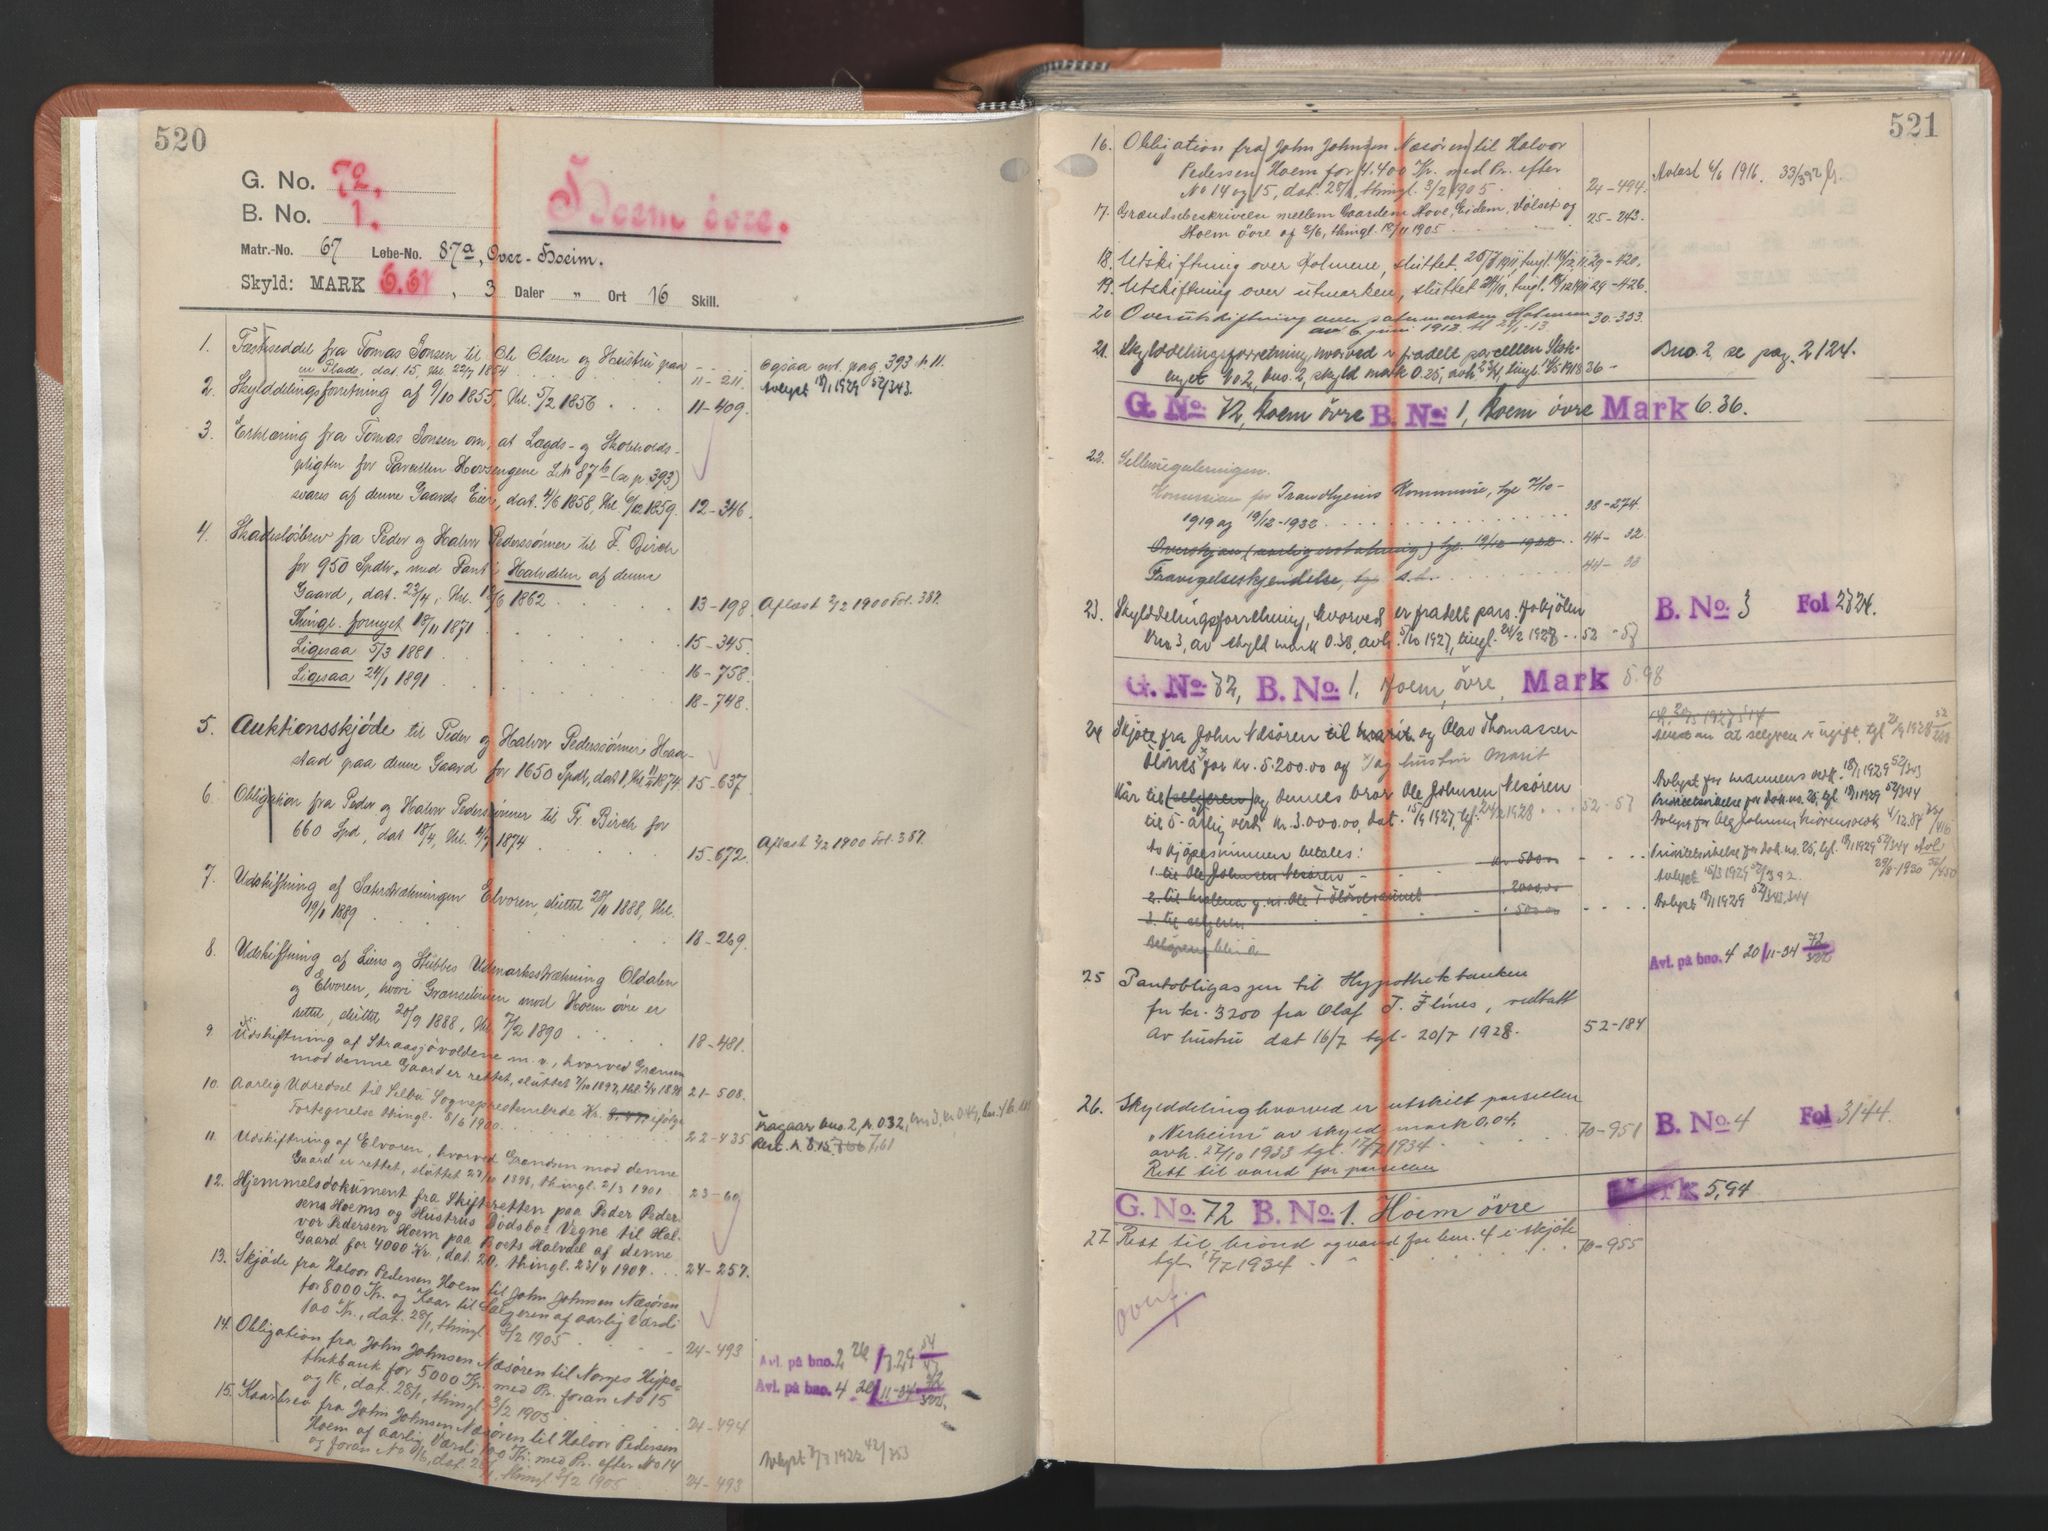 520
G. No. 72.
B. No. 1.
Hoem övre.
Matr.-No. 67 Løbe-No. 87a, Over-Hoeim.
Skyld: MARK 6.61, 3 Daler " Ort 16 Skill.
1. Fæsteseddel fra Tomas Jonsen til Ole Olsen og Hustru paa
en Plads, dat. 15, thl. 22/7 1854 11-211. ogsaa not. pag. 393 n. 11.
Avlyst 18/1 1929 52/343.
2. Skylddelingsforretning af 9/10 1855, thl. 5/2 1856 11-409.
3. Erklæring fra Tomas Jonsen om, at Lægds- og Skoleholds-
pligten for Parcellen Hovsengene L.N. 87b (se p 393)
svares af denne Gaards Eier, dat. 4/6 1858, thl. 6/12 1859. 12-346.
4. Skadesløsbrev fra Peder og Halvor Pederssønner til F. Birch
for 950 Spdlr. med Pant i Halvdelen af denne
Gaard, dat. 23/4, thl. 1/6 1862 13-198. Aflæst 2/2 1900 Fol. 387.
Thingl. fornyet 18/11 1871 15-345.
Ligesaa 5/3 1881 16-758.
Ligesaa 24/1 1891 18-748.
5. Auktionsskjøde til Peder og Halvor Pederssønner Haa-
stad paa denne Gaard for 1650 Spdlr, dat 1, thl 11/4 1874. 15-637.
6. Obligation fra Peder og Halvor Pederssønner til Fr. Birch for
660 Spd, dat 18/4, thl. 4/7 1874 15-672. Aflæst 2/2 1900 Fol. 387.
7. Udskiftning af Sæterstrækningen Elvoren, sluttet 20/11 1888, thl.
19/1 1889 18-269.
8. Udskiftning af Liens og Stubbes Udmarksstrækning Oldalen
og Elvoren, hvori Grænselinien mod Hoem øvre er
rettet, sluttet 20/9 1888, thl 7/2 1890 18-481.
9 Udskiftning af Straasjøvoldene m.v., hvorved Grænsen
mod denne Gaard er rettet, sluttet 7/10 1897, thl 2/4 1898 21-508.
10. Aarlig Udredsel til Selbu Sognepresteembede Kr. ifølge
Fortegnelse thingl. 8/6 1900 22-435 Fragaar bno. 2, kr. 0.32,
Rest. kr. 8.15
11. Udskiftning af Elvoren, hvorved Grændsen mod denne
Gaard er rettet, sluttet 27/10 1898, thingl. 2/3 1901 23-60
12. Hjemmelsdokument fra Skifteretten paa Peder Peder-
sens Hoems og Hustrus Dødsbos Vegne til Hal-
vor Pedersen Hoem paa Boets Halvdel af denne
Gaard for 4000 Kr., dat. 20, thingl. 23/4 1904 24-257.
13. Skjøde fra Halvor Pedersen Hoem til John Johnsen Næsøren
for 8000 Kr. og Kaar til Sælgeren af aarlig Værdi
100 Kr., dat. 28/1, thingl. 3/2 1905 24-493
14. Obligation fra John Johnsen Næsøren til Norges Hypo-
thekbank for 5000 Kr. med Pr. foran No 15
og 16, dat. 28/1, thingl. 3/2 1905 24-494
Avl. på bno. 2
Avl. på bno. 4 20/11-34 72/
15. Kaarbrev fra John Johnsen Næsøren til Halvor Pedersen
Hoem af aarlig Værdi 100 Kr. med Pr. efter No 14
og foran No 16, dat. 28/1, thingl 3/2 1905 24-493 Avlyst 2/3 1922 42/353
521
16. Obligation fra John Johnsen Næsøren til Halvor
Pedersen Hoem for 4.400 Kr. med Pr. efter
No 14 og 15, dat. 28/1, thingl. 3/2 1905 24-494. Avlæst 4/6 1916. 33/392
17. Grændsebeskrivelse mellem Gaardene Hove, Eidem, Dølset og
Hoem øvre af 2/6, thingl. 18/11 1905 25-243.
18. Utskiftning over Holmene, sluttet 20/7 1911, tingl. 14/12 11 29-420.
19. Utskiftning over utmarken, sluttet 24/11, tingl. 14/12 1911 29-426.
20 Overutskiftning over Holmene
av 6 juni 1913 30-353.
21. Skylddelingsforretning hvorved er fradelt parcellen
bno. 2, skyld mark 0.25, 1918 36- Bno. 2, se pag. 2124.
G. No. 72, Hoem övre B. No. 1, Hoem övre Mark 6.36.
22. Selburegulerningen.
Konsesjon for Trondhjems Kommune, tgl 7/10-
1919 og 19/12-1932 38-274.
Overskjøn (aarlig erstatning) tgl. 19/12 1922 44-32
Fravigelseskjendelse, tgl s.d. 44-30
23. Skylddelingsforretning, hvorved er fradelt pars.
bno. 3, av skyld mark 0.38, avh. 5/10 1927, tingl. 24/2 1928 52-57 B. No. 3 Fol 2724.
G. No. 72, B. No. 1, Hoem, övre, Mark 5.98
24 Skjøte fra John Næsören til Marit og Olav Thomassen
Flönes for kr. 5.200.00 og
Kår til (selgeren) og dennes bror Ole Johnsen Nesören
til 5-årlig verdi kr. 3.000.00, dat. 15/9 1927, tgl. 24/2 1928 52-57
Av kjøpesummen betales:
1. til Ole Johnsen Nesören kr 500.00
2. 2000.00
3. til selgeren 500.00
Attest om at selgeren er ugift, tgl 21/9 1928 52/
Avlyst for mannens vedk. 18/1 1929 52/343
Prioritetsvikelse for dok. no. 25, tgl 18/1 1929 52/344
Prioritetsvikelse for dok. no. 25, tgl. 18/1 1929 52/344
Avlyst 15/3 1929 52/392.
Avlyst 18/1 1929 52/343,344
Avl. på bno. 4 20/11-34 72/
25 Pantobligasjon til Hypothekbanken
for kr. 3200 fra Olaf T. Flönes, vedtatt
av hustru dat 16/7 tgl. 20/7 1928. 52-184
26. Skylddeling hvorved er utskilt parsellen
"Nerheim" av skyld mark 0,04,
avh. 27/10 1933 tgl. 17/7 1934 70-951 B. No. 4 Fol 3144.
Rett til vand for parsellen
G. No. 72 B. No. 1. Hoem övre Mark 5,94
27 Rett til brönd og vand for bnr. 4 i skjöte
tgl. 17/7 1934 70-955
overf.